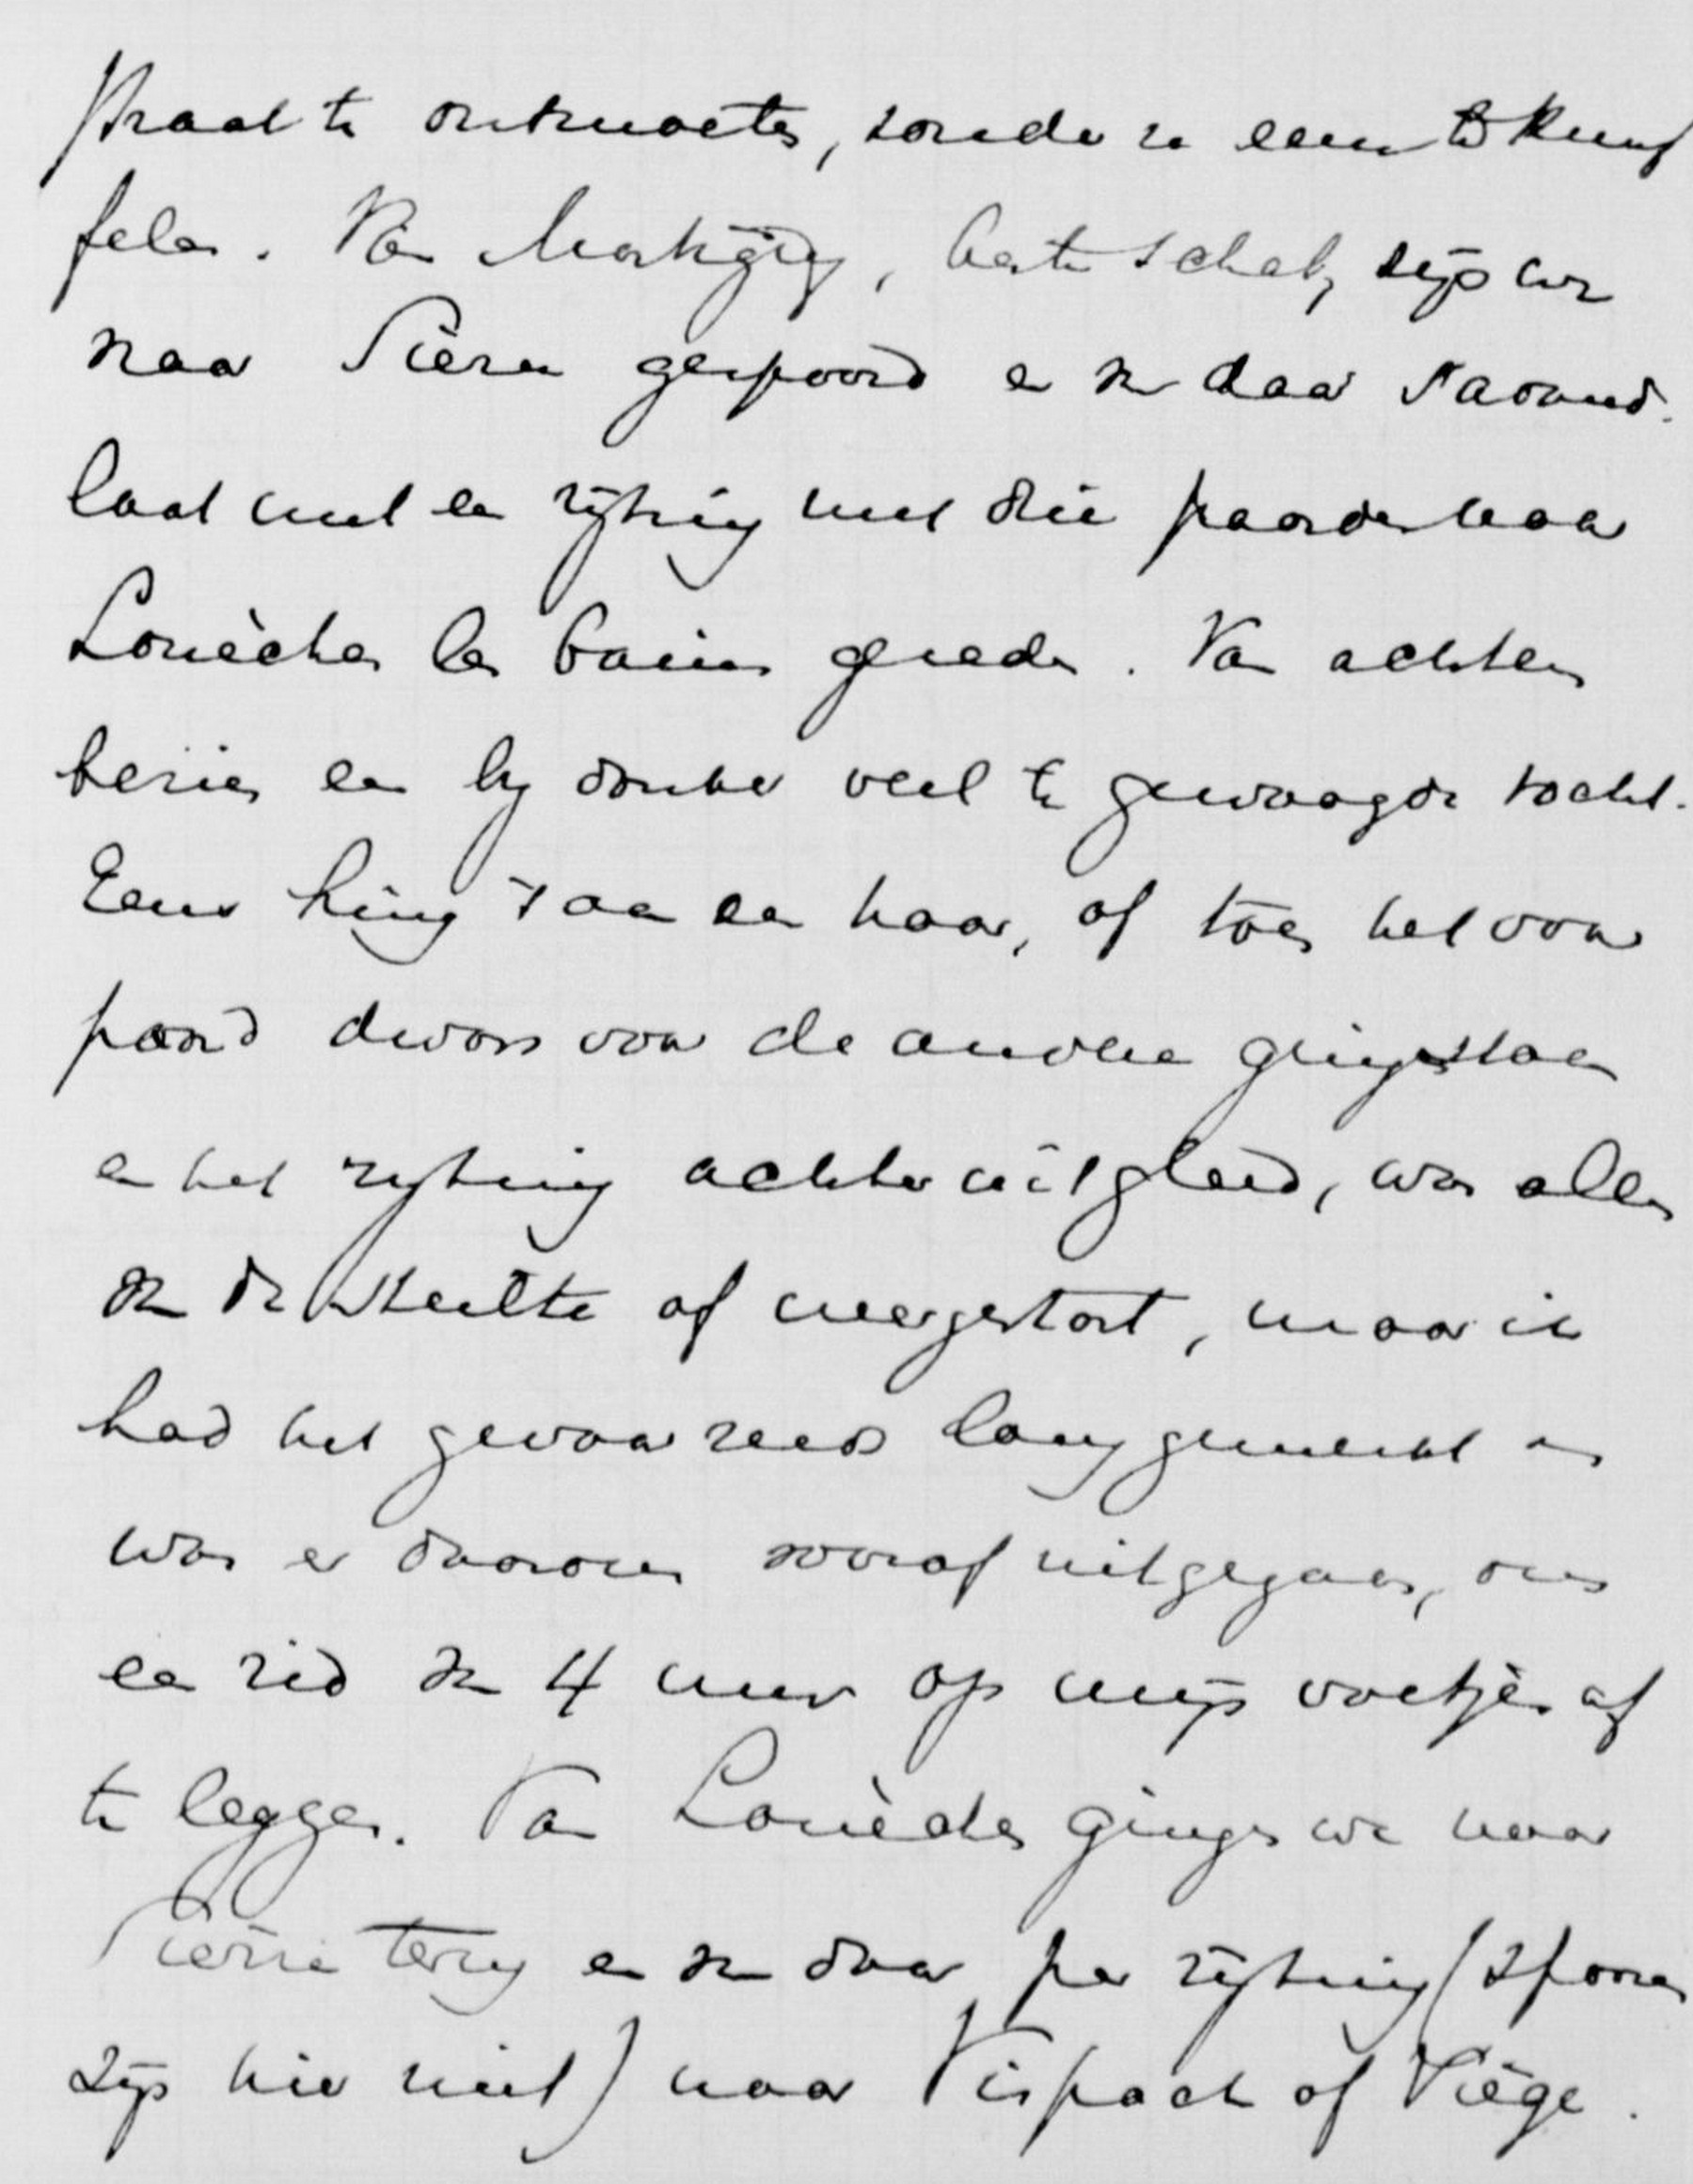 straat te ontmoeten, zonder ze even te knuf
felen. Van Martigny, beste schat, zijn we
naar Sierre gespoord en van daar 's avonds
laat met een rijtuig met drie paarden naar
Louèche les bains gereden. Van achteren
bezien een bij donker veel te gewaagde tocht.
Eens hing 't aan een haar, of toen het voor
paard dwars voor de andere ging staan
en het rijtuig achteruitgleed, was alles
van de steilte af neergestort, maar ik
had het gevaar reeds lang gemerkt en
was er daarom vooraf uitgegaan, om
een rid van 4 uur op mijn voetjes af
te leggen. Van Louèche gingen we naar
Sierre terug en van daar per rijtuig (sporen
zijn hier niet) naar Vispach of Viège.